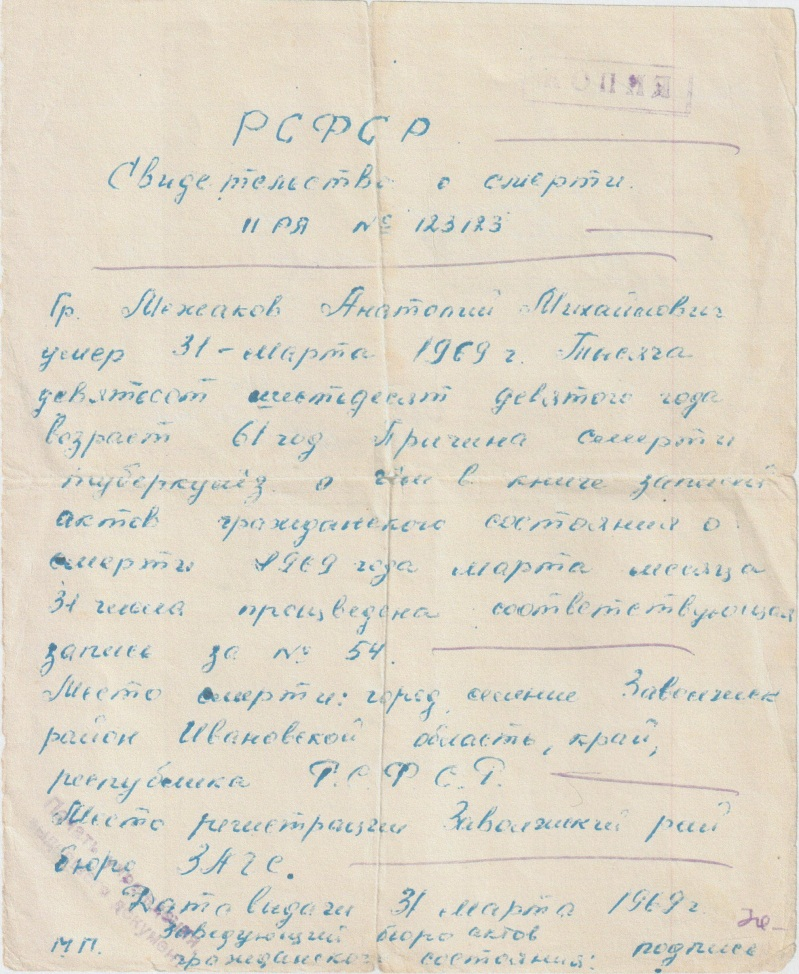 РСФСР
Свидетельство о смерти.
II РЯ № 123123
Гр. Межаков Анатолий Михайлович
умер 31 – марта 1969 г. Тысяча
девятьсот шестьдесят девятого года
возраст 61 год Причина смерти
туберкулёз о чём в книге записей
актов гражданского состояния о
смерти 1969 года марта месяца
31 числа произведена соответствующая
запись за № 54.
Место смерти: город, селение Заволжск
район Ивановской область, край,
республика Р.С.Ф.С.Р.
Место регистрации Заволжский рай
бюро ЗАГС.
Дата выдачи 31 марта 1969 г.
Заведующий бюро актов
М.П. гражданского состояния: подпись